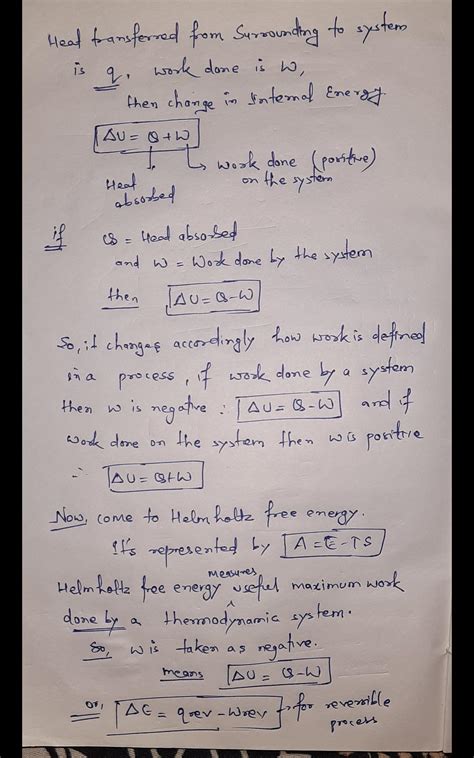 Heat transferred from Surrounding to system
is q, work done is W,
then change in Internal Energy.
ΔU = Q + W
Heat absorbed
work done (positive) on the system
if Q = Heat absorbed
and W = Work done by the system
then ΔU = Q - W
So, it changes accordingly how work is defined
in a process, if work done by a system
then w is negative ∴ ΔU = Q - W and if
work done on the system then w is positive
∴ ΔU = Q + W
Now, come to Helmholtz free energy.
It's represented by A = E - TS
Helmholtz free energy measures useful maximum work
done by a thermodynamic system.
So, W is taken as negative.
means ΔU = Q - W
or, ΔE = qrev - Wrev → for reversible process